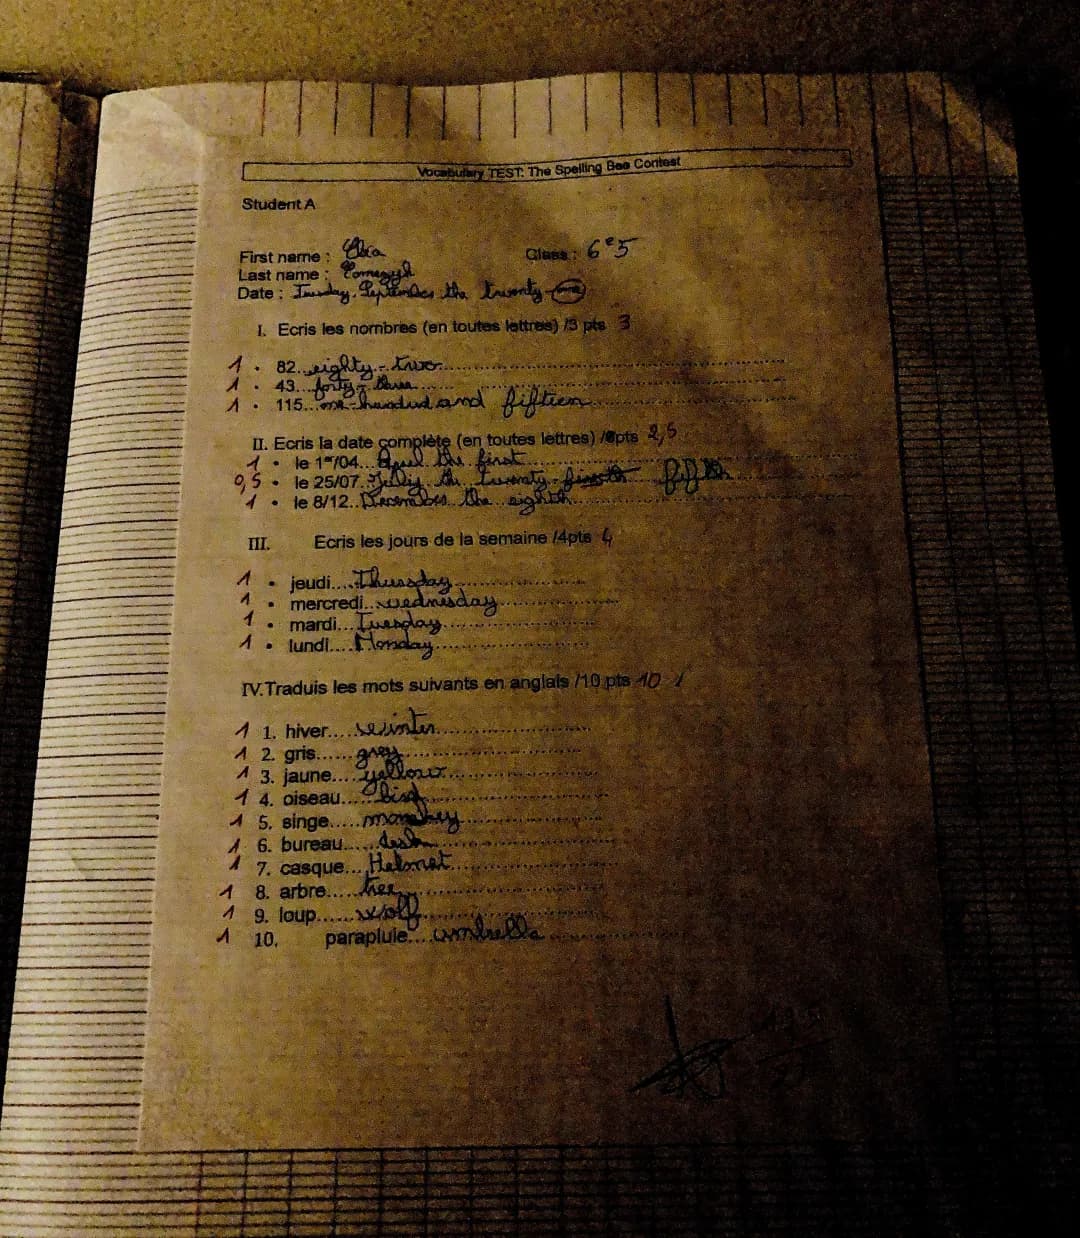 Vocabulary TEST: The Spelling Bee Contest
Student A
First name : Class : 6e5
Last name :
Date : Tuesday, September the twenty-one
I. Ecris les nombres (en toutes lettres) /3 pts 3
1 • 82...eighty-two
1 • 43...forty-three
1 • 115...one hundred and fifteen
II. Ecris la date complète (en toutes lettres) /3pts 2,5
1 • le 1er/04...April the first
0,5 • le 25/07..July the twenty fifth
1 • le 8/12..December the eighth
III. Ecris les jours de la semaine /4pts 4
1 • jeudi....Thursday
1 • mercredi...wednesday
1 • mardi...Tuesday
1 • lundi....Monday
IV.Traduis les mots suivants en anglais /10 pts 10
1 1. hiver....winter
1 2. gris......grey
1 3. jaune....yellow
1 4. oiseau.....bird
1 5. singe.....monkey
1 6. bureau.....desk
1 7. casque...Helmet
1 8. arbre.....tree
1 9. loup......wolf
1 10. parapluie....umbrella